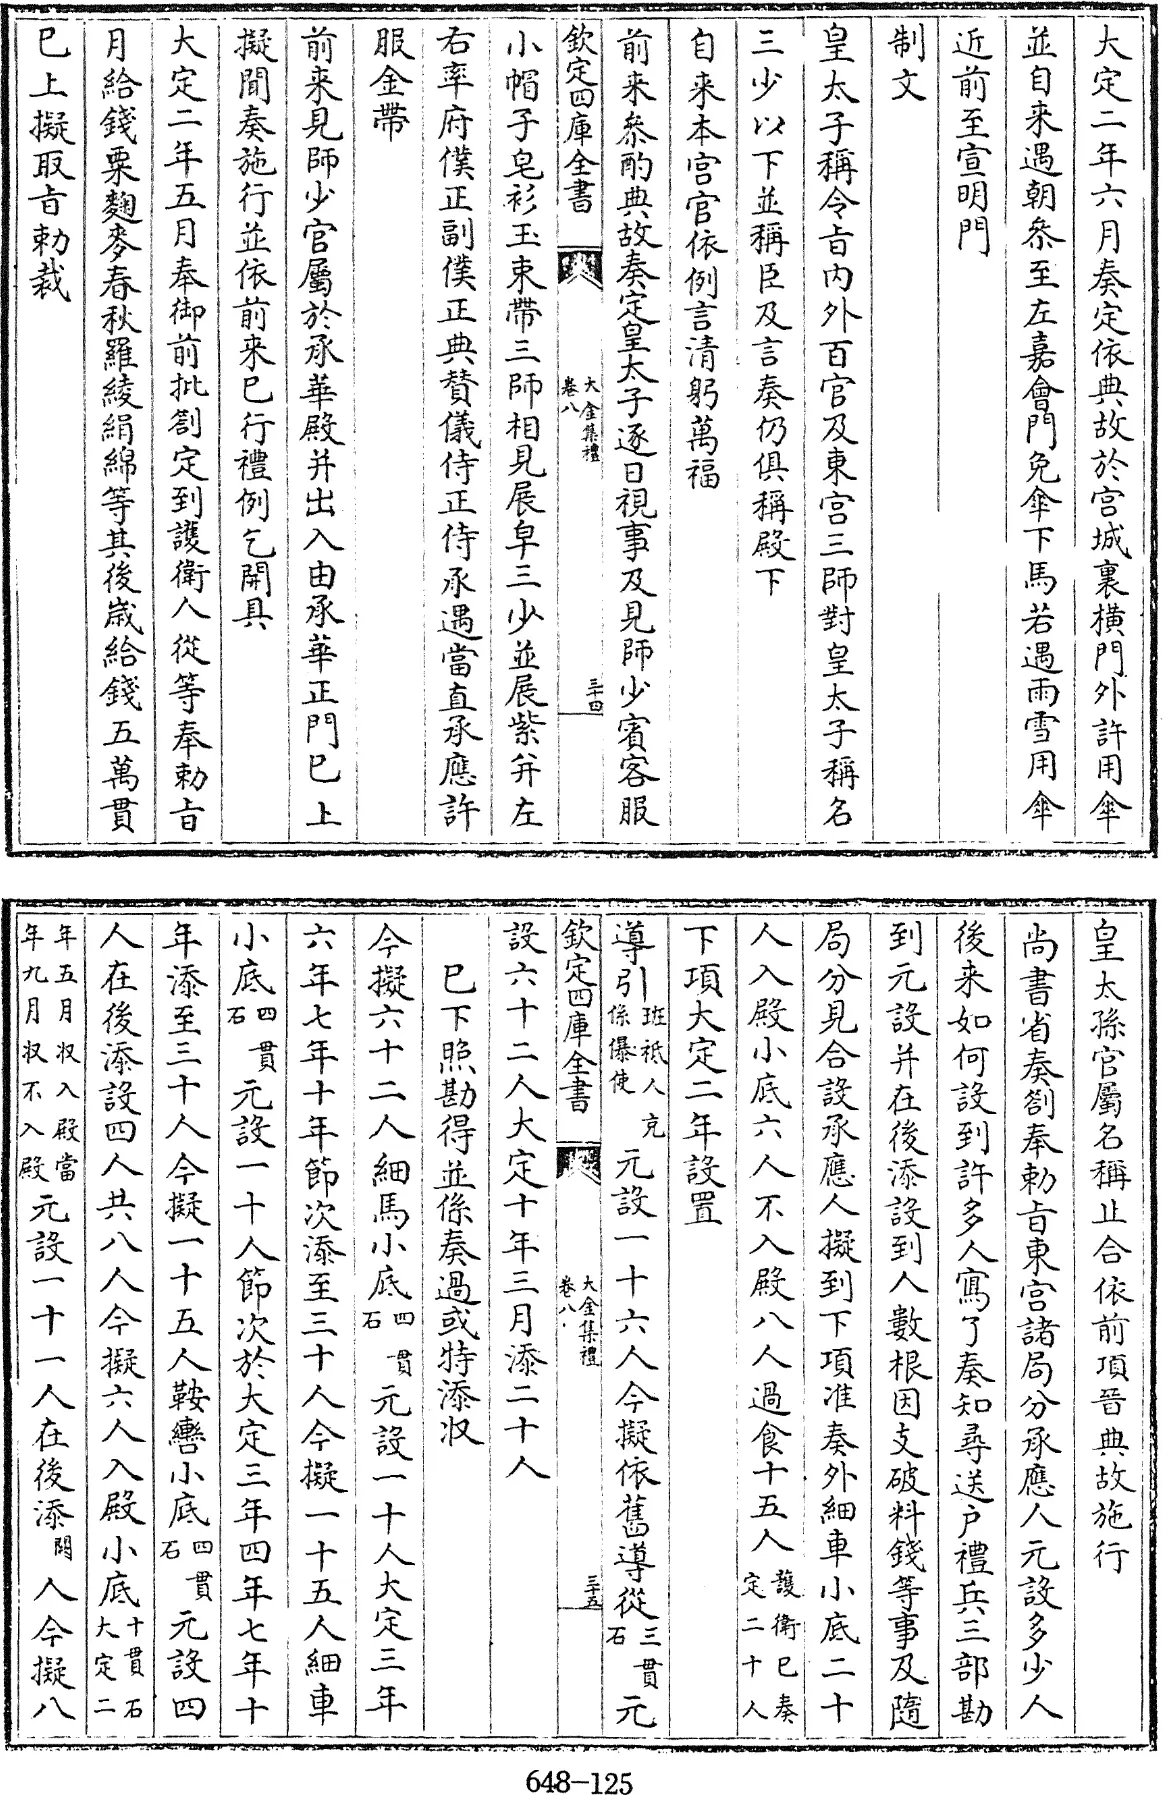 大定二年六月奏定依典故於宫城裏横門外許用傘
並自来遇朝叅至左嘉會門免傘下馬若遇雨雪用傘
近前至宣明門
制文
皇太子稱令㫖内外百官及東宫三師對皇太子稱名
三少以下並稱臣及言奏仍俱稱殿下
自来本宫官依例言清躬萬福
前来叅酌典故奏定皇太子逐日視事及見師少賓客服
欽定四庫全書
大金集禮
卷八
三十四
小帽子皂衫玉束帶三師相見展皁三少並展紫并左
右率府僕正副僕正典贊儀侍正侍承遇當直承應許
服金帶
前来見師少官屬於承華殿并出入由承華正門已上
擬聞奏施行並依前来已行禮例乞開具
大定二年五月奉御前批劄定到護衛人從等奉勅㫖
月給錢粟麴麥春秋羅綾絹綿等其後嵗給錢五萬貫
已上擬取㫖勅裁
皇太孫官屬名稱止合依前項晉典故施行
尚書省奏劄奉勅㫖東宫諸局分承應人元設多少人
後来如何設到許多人寫了奏知尋送户禮兵三部勘
到元設并在後添設到人數根因支破料錢等事及隨
局分見合設承應人擬到下項准奏外細車小底二十
人入殿小底六人不入殿八人過食十五人護衛已奏
定二十人
下項大定二年設置
導引班祗人充
係儤使元設一十六人今擬依舊導從三貫
石元
欽定四庫全書
大金集禮
卷八
三十五
設六十二人大定十年三月添二十人
已下照勘得並係奏過或特添收
今擬六十二人細馬小底四貫
石元設一十人大定三年
六年七年十年節次添至三十人今擬一十五人細車
小底四貫
石元設一十人節次於大定三年四年七年十
年添至三十人今擬一十五人鞍轡小底四貫
石元設四
人在後添設四人共八人今擬六人入殿小底十貫石
大定二
年五月收入殿當
年九月收不入殿元設一十一人在後添闕人今擬八
648-125